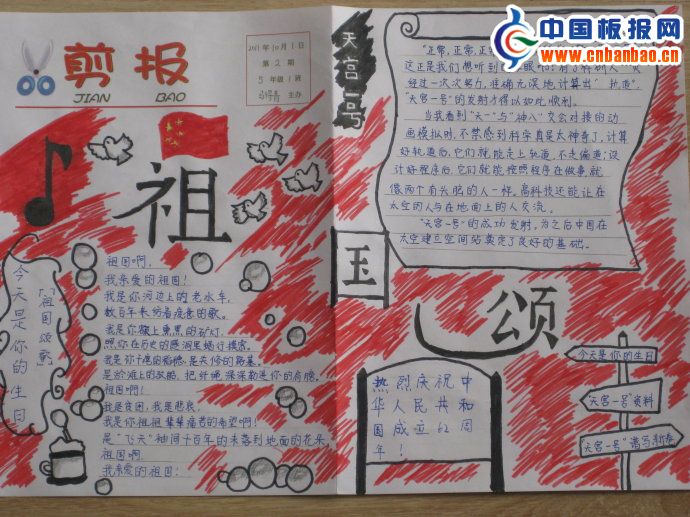 中国板报网
www.cnbanbao.cn
剪报
JIAN BAO
2011年10月1日
第2期
5年级1班
主办
祖
国
颂
今天是你的生日
《祖国颂歌》
祖国啊,
我亲爱的祖国!
我是你河边上的老水车,
数百年来纺着疲惫的歌。
我是你额上熏黑的矿灯,
照你在历史的隧洞里蜗行摸索。
我是干瘪的稻穗,是失修的路基。
是淤滩上的驳船,把纤绳深深勒进你的肩膀。
祖国啊!
我是贫困,我是悲哀,
我是你祖祖辈辈痛苦的希望啊!
是“飞天”袖间千百年的未落到地面的花朵,
祖国啊
我亲爱的祖国!
天宫一号
“正常,正常,正常
这正是我们想听到
经过一次次努力,准确无误地计算出“轨道”。
“天宫一号”的发射才得以如此顺利。
当我看到“天一”与“神八”交会对接的动
画模拟时,不禁感到科学真是太神奇了,计算
好轨道后,它们就能走上轨道,不走偏道;设
计好程序后,它们就能按照程序在做事就
像两个有头脑的人一样。高科技还能让在
太空的人与在地面上的人交流。
“天宫一号”的成功发射,为之后中国在
太空建立空间站奠定了良好的基础。
热烈庆祝中
华人民共和
国成立62周
年!
今天是你的生日
“天宫一号”资料
“天宫一号”